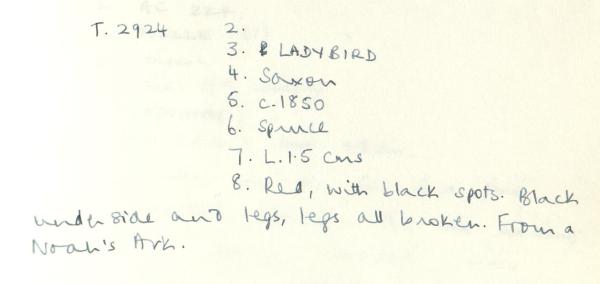 T. 2924 2.
3. LADYBIRD
4. Saxon
5. c.1850
6. Spruce
7. L.1.5 cms
8. Red, with black spots. Black
underside and legs, legs all broken. From a
Noah's Ark.